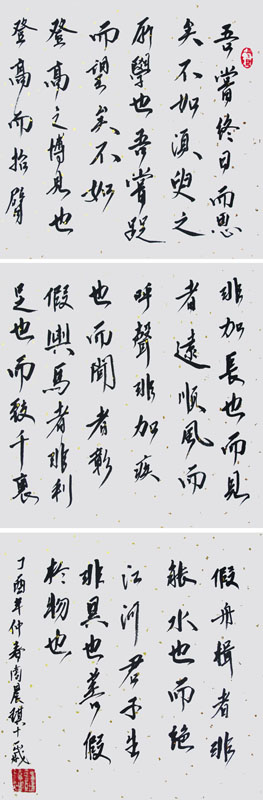 吾嘗終日而思
矣不如須臾之
所學也吾嘗跂
而望矣不如
登高之博見也
登高而招臂
非加長也而見
者遠順風而
呼聲非加疾
也而聞者彰
假輿馬者非利
足也而致千裏
假舟楫者非
能水也而絕
江河君子生
非異也善假
於物也
丁酉年仲春